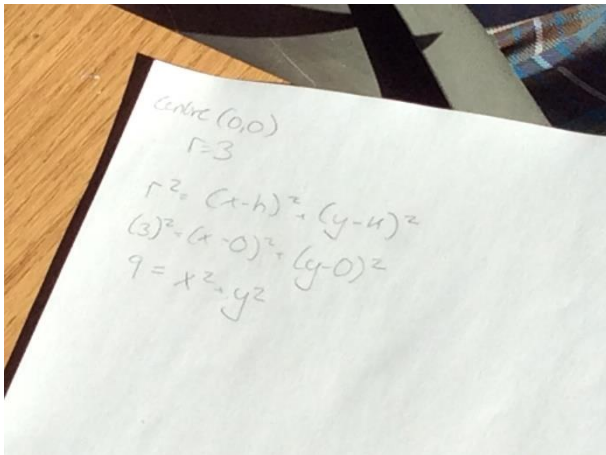 centre (0,0)
r=3
r² = (x-h)² + (y-k)²
(3)² = (x-0)² + (y-0)²
9 = x² + y²